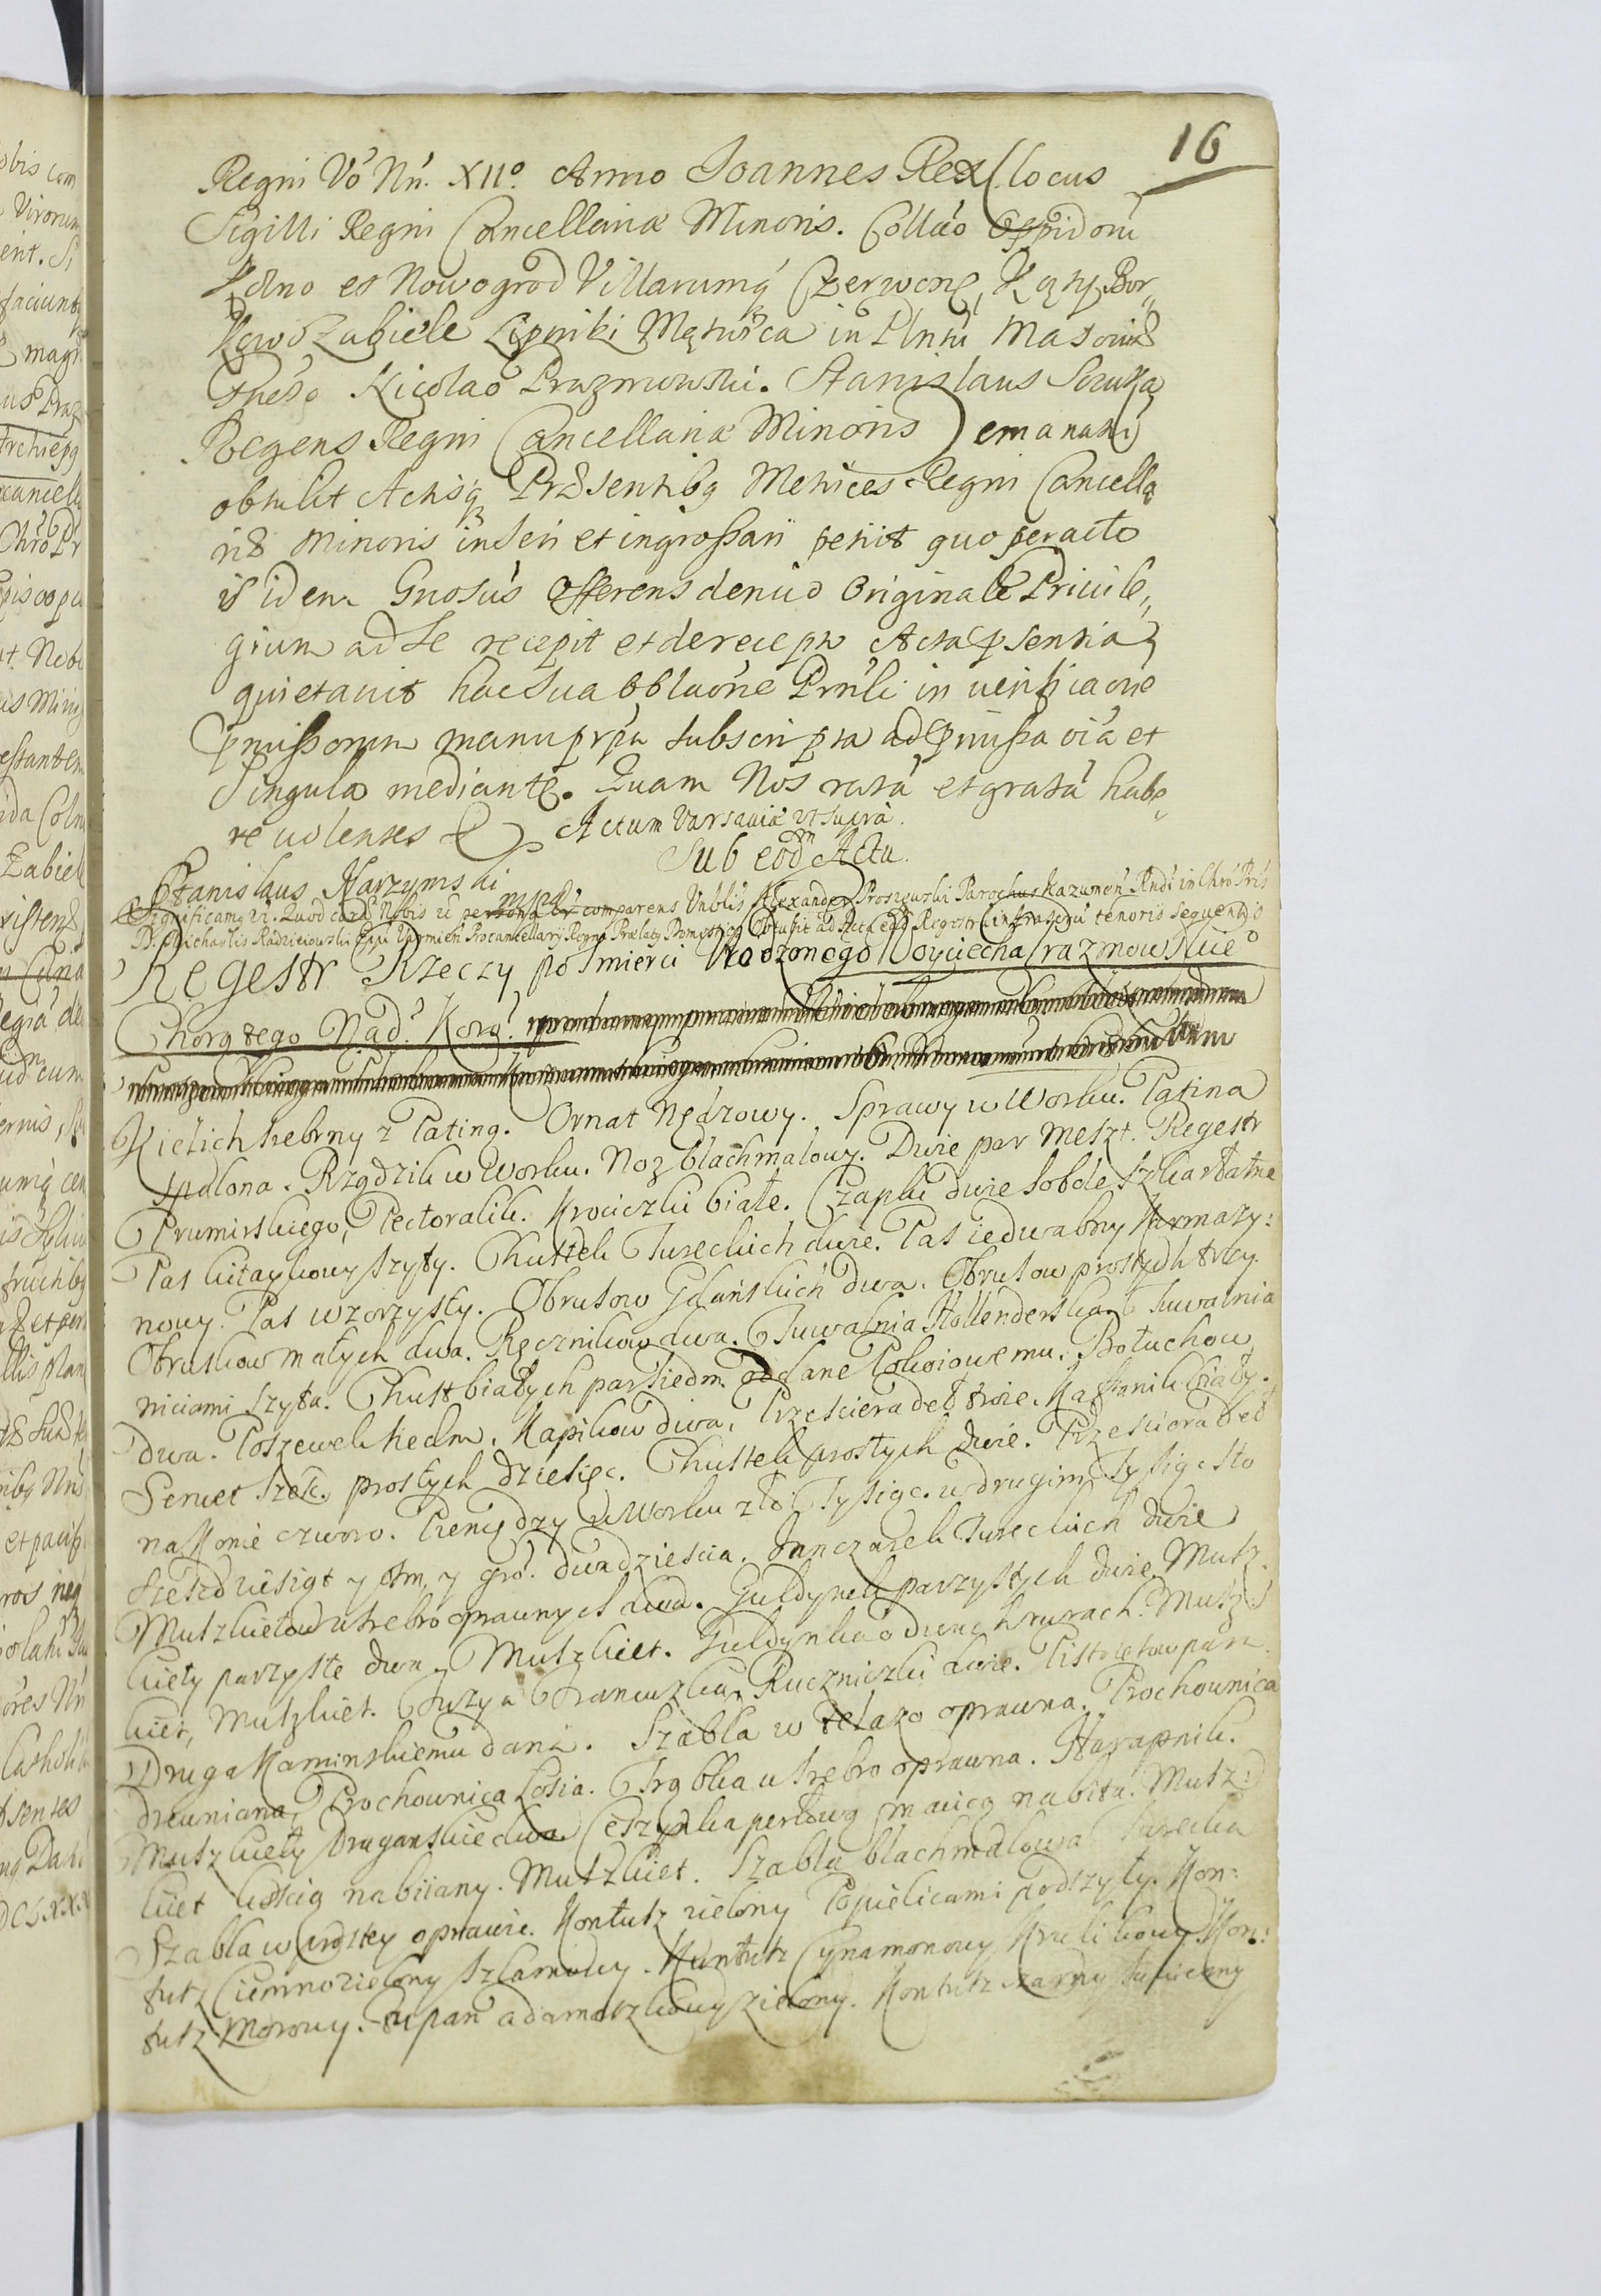 16
Regni Vō Nri. XIIº. Anno Joannes Rex (locus
Sigilli Regni Cancellariæ Minoris. Collâo Oppidorū
Kolno et Nowogrod Villarumq́ Czerwone, Kąty, Bor,,
Kowo Zabiele Lipniki Mątwica in Plntu Masoviæ
Gneso Nicolao Prazmowski. Stanislaus Szczuka
Regens Regni Cancellariæ Minoris) emanati
obtulit Actisq Præsentibg Metrices Regni Cancella
riæ Minoris inseri et ingrossari petiit quo peracto
is idem Gnosus Offerens denuo Originale Privile,,
gium ad se recepit et de recepto Acta psentia
quietavit hac sua oblaone Prnti in verificaone
pmissorum manu ppa subscripta ad pmissa oia et
singula mediante. Quam Nos ratā et gratā habe,,
re volentes Actum Varsaviæ ut supra.
Sub eodm Actu.
Stanislaus Narzymski
mpp
Significamg Quod corā Nobis comparens Vnblis Alexander Proszewski Parochus Kazumen Rndi in Chro Pris
D. Michaelis Radzieiowski Eppi Varmien Procancellary Regni Prælatg Domesticg Obtulit ad Acta eād Regestr infrascptū tenoris sequentis
Regestr Rzeczy po smierci Urodzonego Woyciecha Prazmowskieº
Chorążego Nad: Kor:
Kielich srebrny z Patiną. Ornat Nędzowy. Sprawy w Worku. Patina
spalona. Rządzik w Worku. Noz blachmalowy. Dwie par Meszt. Regestr
Prumirskiego, Pectoralik. Krociczki białe. Czapki dwie sobole szkarłatne
Pas kitaykowy szyty. Chustek Tureckich dwie. Pas iedwabny Karmazy:
nowy. Pas wzorzysty. Obrusow Gdańskich dwa. Obrusow prostych trzy.
Obruskow małych dwa. Ręcznikow dwa. Tuwalnia Hollenderska. Tuwalnia
niciami szyta. Chust białych par siedm. oddane Pokoiowemu. Bołuchow
dwa. Poszewek siedm. Kapikow dwa. Prześcieradeł troie. Kaftanik biały.
Serwet sześć, prostych dziesięc. Chustek prostych dwie. Prześcioradeł
na Konie czworo. Pieniędzy w Worku zł: Tysiąc. w drugim Tysiąc sto
sześdziesiąt y ośm, y gro. dwadzieścia. Janczarek Tureckich dwie
Muszkietow w srebro oprawnych dwa. Guldynek parzystych dwie. Musz
kiety parzyste dwa. Muszkiet. Guldynka o dwuch rurach. Musz:
kiet, Muszkiet. Fuzya Francuzka, Ruczniczki dwie. Pistoletow para.
Druga Kaminskiemu dana. Szabla w żelazo oprawna. Prochownica
drewniana, Prochownica Łosia. Trąbka w srebro oprawna. Harapnik.
Muszkiety Dragańskie dwa. Cieszynka perłową macicą nabita. Musz:
kiet kością nabiiany. Muszkiet. Szabla blachmalowa Turecka
Szabla w prostey oprawie. Kontusz zielony Popielicami podszyty. Kon:
tusz Ciemnozielony szlamowy. Kontusz Cynamonowy Krolikowy. Kon:
tusz Morowy. Żupan adamaszkowy zielony. Kontusz czarny